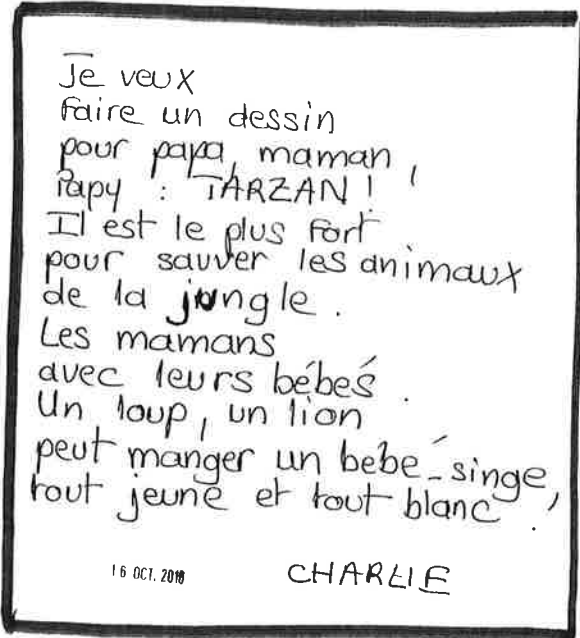 Je veux
faire un dessin
pour papa, maman,
Papy : TARZAN !
Il est le plus fort
pour sauver les animaux
de la jungle.
Les mamans
avec leurs bébés.
Un loup, un lion
peut manger un bébé-singe,
tout jeune et tout blanc.
16 OCT. 2018 CHARLIE